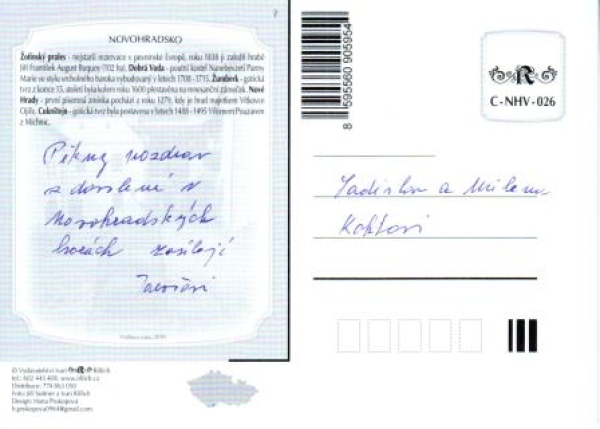 NOVOHRADSKO
Žofínský prales - nejstarší rezervace v pevninské Evropě, roku 1838 ji založil hrabě
Jiří František August Buquoy (102 ha). Dobrá Voda - poutní kostel Nanebevzetí Panny
Marie ve stylu vrcholného baroka vybudovaný v letech 1708 - 1715. Žumberk - gotická
tvrz z konce 13. století byla kolem roku 1600 přestavěna na renesanční zámeček. Nové
Hrady - první písemná zmínka pochází z roku 1279, kdy je hrad majetkem Vítkovce
Ojíře. Cuknštejn - gotická tvrz byla postavena v letech 1488 - 1495 Vilémem Pouzarem
z Michnic.
Pěkný pozdrav
z dovolené v
Novohradských
horách zasílají
8 595560 905954
R
C-NHV-026
Ladislav a Milena
© Vydavatelství Ivan Rillich
tel.: 602 445 408, www.rillich.cz
Distribuce: 774 863 050
Foto: Jiří Sidtner a Ivan Rillich
Design: Hana Prokopová
h.prokopova0964@gmail.com